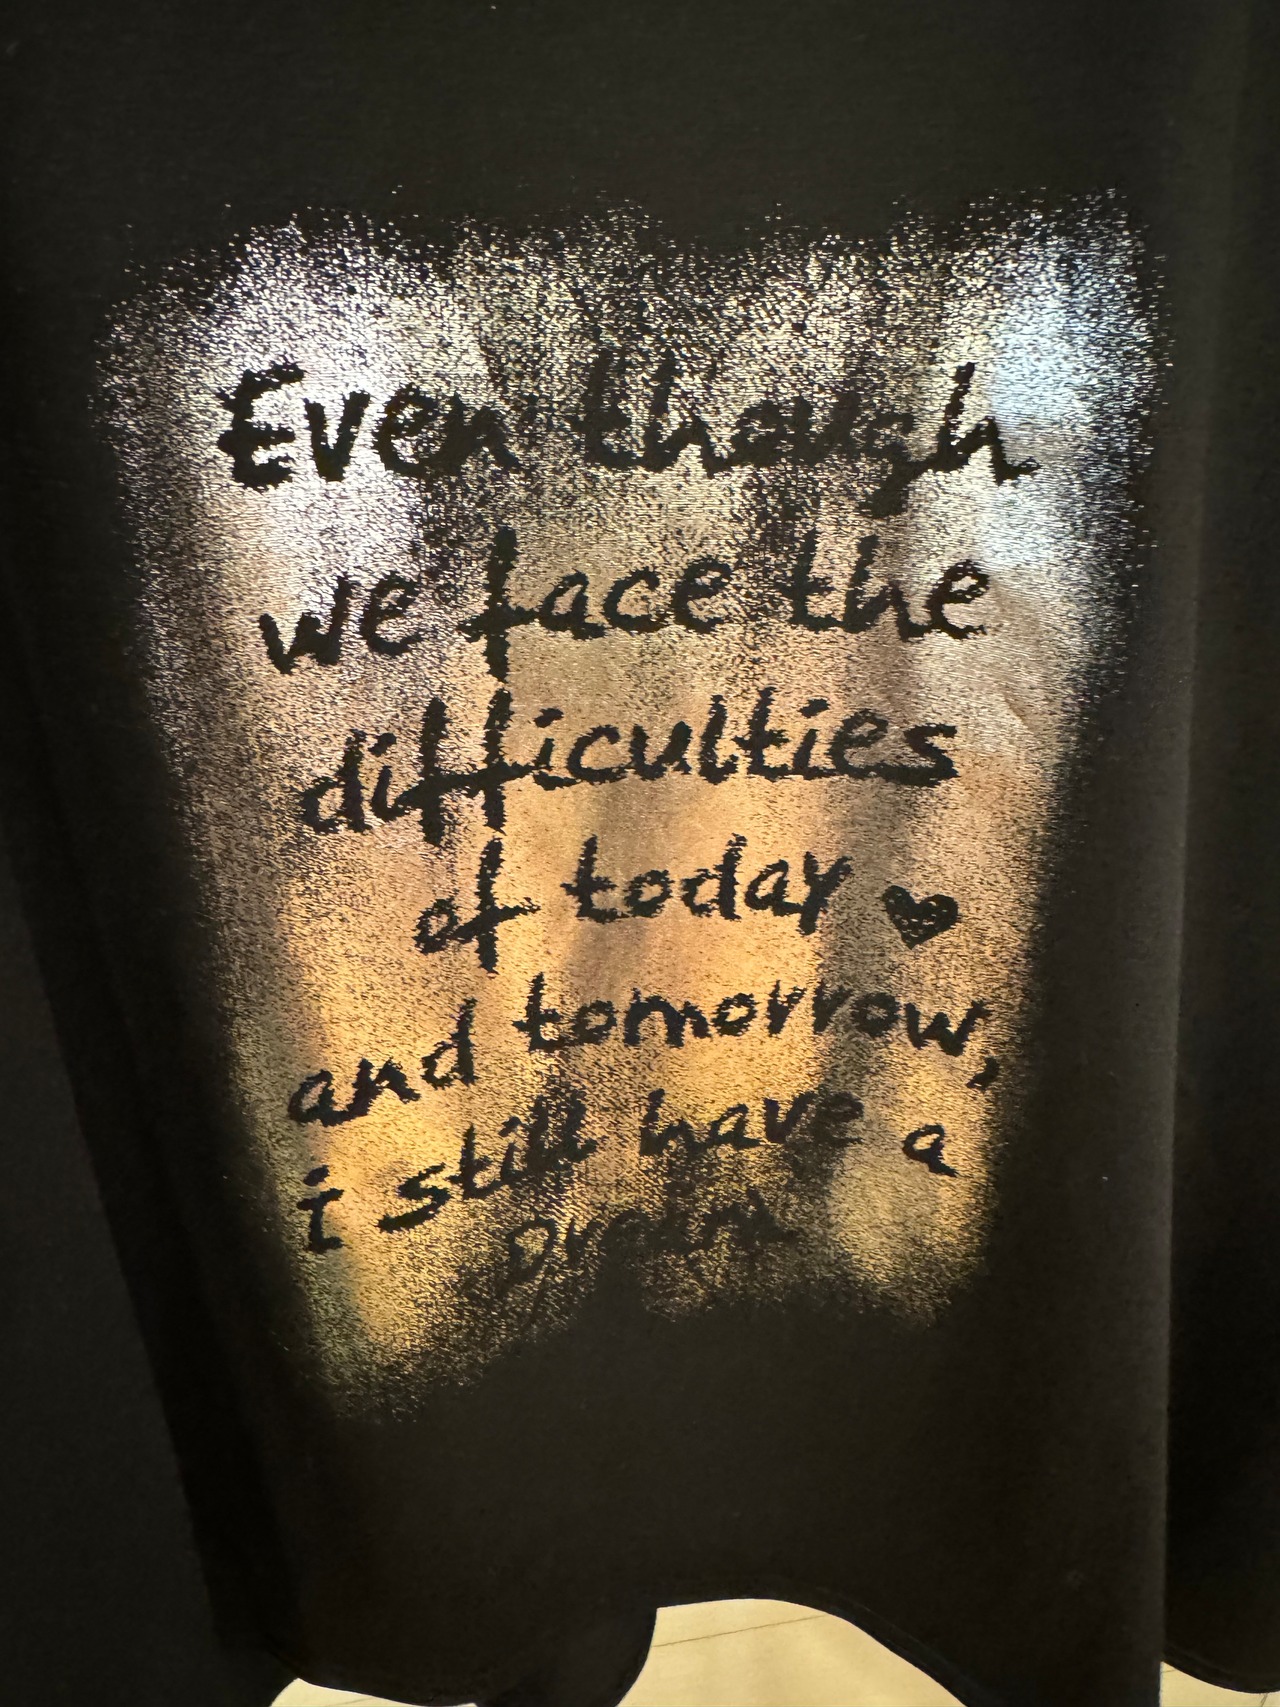 Even though
we face the
difficulties
of today ♥
and tomorrow,
i still have a
Dream